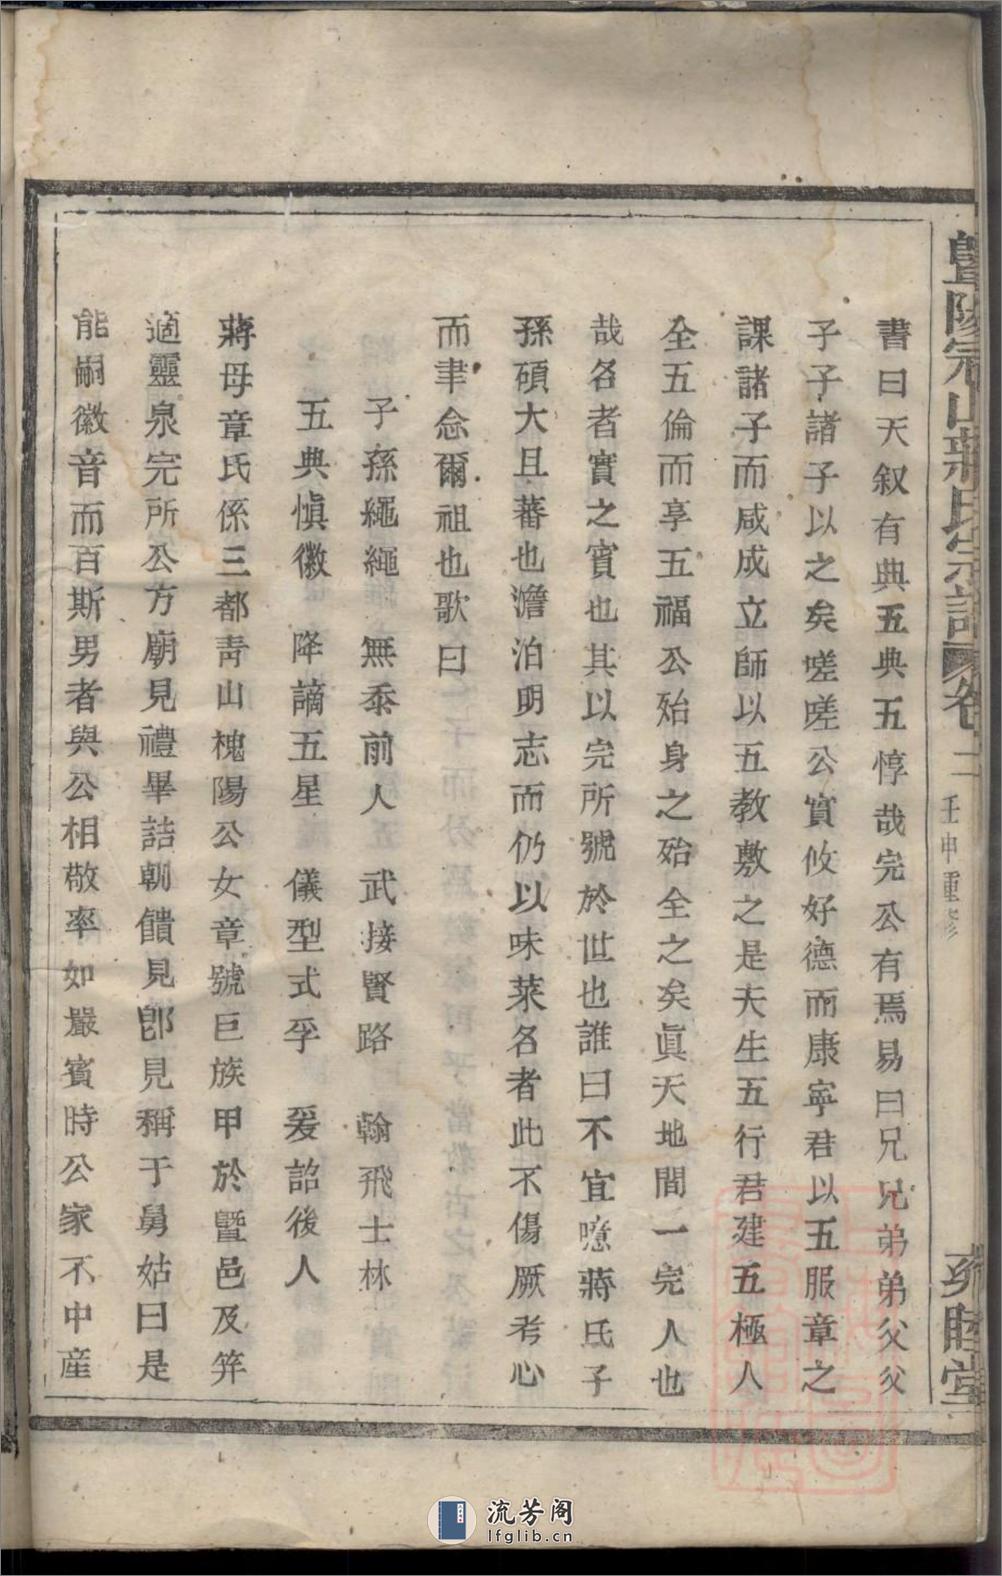 暨陽宗山蔣氏宗譜 卷二 壬申重修 雍睦堂
書曰天叙有典五典五惇哉完公有焉易曰兄兄弟弟父父
子子諸子以之矣嗟嗟公實攸好德而康寧君以五服章之
課諸子而咸成立師以五教敷之是天生五行君建五極人
全五倫而享五福公殆身之殆全之矣眞天地間一完人也
哉名者實之賓也其以完所號於世也誰曰不宜噫蔣氏子
孫碩大且蕃也澹泊明志而仍以味菜名者此不傷厥考心
而聿念爾祖也歌曰
子孫繩繩 無忝前人 武接賢路 翰飛士林
五典愼徽 降謫五星 儀型式孚 爰詒後人
蔣母章氏係三都靑山槐陽公女章號巨族甲於暨邑及笄
適靈泉完所公方廟見禮畢詰朝饋見卽見稱于舅姑曰是
能嗣徽音而百斯男者與公相敬率如嚴賓時公家不中産
流芳阁
lfglib.cn